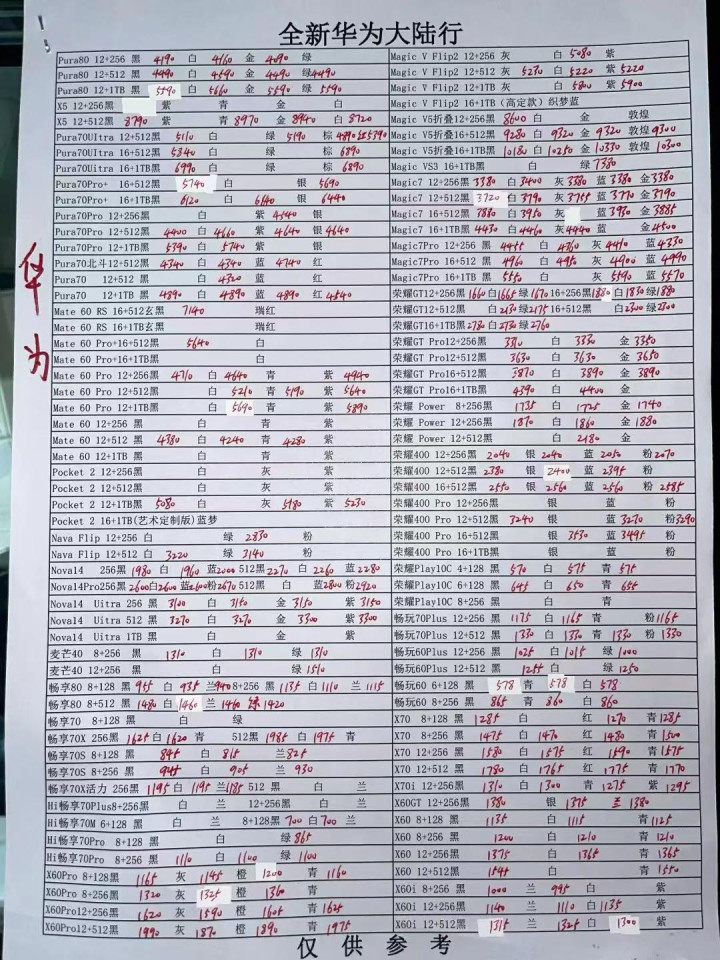 全新华为大陆行
华为
Pura80 12+256 黑 4190 白 4160 金 4090 绿
Pura80 12+512 黑 4490 白 4590 金 4490 绿4490
Pura80 12+1TB 黑 5590 白 5660 金 5590 绿 5590
X5 12+256黑 紫 青 金 白
X5 12+512黑 8790 紫 青 8970 金 8940 白 8720
Pura70UItra 12+512黑 5110 白 绿 5190 棕 4890红5390
Pura70UItra 16+512黑 5840 白 绿 棕 6890
Pura70Ultra 16+1TB黑 6990 白 绿 棕 6890
Pura70Pro+ 16+512黑 5740 白 银 5690
Pura70Pro+ 16+1TB黑 6120 白 6140 银 6440
Pura70Pro 12+256黑 白 紫 4140 银
Pura70Pro 12+512黑 4400 白 4660 紫 4640 银 4640
Pura70Pro 12+1TB黑 5390 白 5740 紫 银
Pura70北斗12+512黑 4340 白 4340 蓝 4740 红
Pura70 12+512 黑 白 4320 蓝 红
Pura70 12+1TB 黑 4890 白 4890 蓝 4890 红 4540
Mate 60 RS 16+512玄黑 7140 瑞红
Mate 60 RS 16+1TB玄黑 瑞红
Mate 60 Pro+16+512黑 5640 白
Mate 60 Pro+16+1TB黑 白
Mate 60 Pro 12+256黑 4710 白 4640 青 紫 4940
Mate 60 Pro 12+512黑 白 5210 青 5190 紫 5640
Mate 60 Pro 12+1TB黑 白 5690 青 紫 5890
Mate 60 12+256 黑 白 青 紫
Mate 60 12+512 黑 4380 白 4240 青 4280 紫
Mate 60 12+1TB 黑 白 青 紫
Pocket 2 12+256黑 白 灰 紫
Pocket 2 12+512黑 白 灰 紫
Pocket 2 12+1TB黑 5080 白 灰 5180 紫 5230
Pocket 2 16+1TB(艺术定制版)蓝梦
Nava Flip 12+256 白 绿 2830 粉
Nava Flip 12+512 白 3220 绿 3140 粉
Nova14 256黑 1980 白 1960 蓝2000 512黑 2270 白 2260 蓝 2280
Nova14Pro256黑 2600白2600 蓝2600粉2670 512黑 白 蓝2800 粉2920
Nova14 Uitra 256 黑 3100 白 3150 金 3150 紫 3150
Nova14 Uitra 512 黑 3270 白 3270 金 3300 紫 3300
Nova14 Uitra 1TB 黑 白 金 紫
麦芒40 8+256 黑 1310 白 1310 绿 1310
麦芒40 12+256 黑 白 绿 1510
畅享80 8+128 黑 955 白 935 兰940 8+256 黑 1135 白 1110 兰 1115
畅享80 8+512 黑 1480 白 1460 兰 1460 绿 1420
畅享70 8+128 黑 白 绿
畅享70X 256黑 1625 白 1620 青 512黑 1985 白 1975 青
畅享70S 8+128 黑 845 白 815 兰825
畅享70S 8+256 黑 945 白 905 兰 930
畅享70X活力 256黑 1195 白 1195 兰1185 512 黑 白 兰
Hi畅享70Plus8+256黑 白 兰 12+256黑 白 兰
Hi畅享70M 6+128 黑 白 兰 8+128黑 700 白 700 兰
Hi畅享70Pro 8+128黑 白 绿 865
Hi畅享70Pro 8+256 黑 1110 白 1100 绿 1100
X60Pro 8+128黑 1165 灰 1145 橙 1200 青 1160
X60Pro 8+256黑 1320 灰 1325 橙 1360 青
X60Pro12+256黑 1620 灰 1590 橙 1605 青 1625
X60Pro12+512黑 1990 灰 1870 橙 1890 青 1975
Magic V Flip2 12+256 灰 白 5080 紫
Magic V Flip2 12+512 灰 5230 白 5220 紫 5220
Magic V Flip2 12+1TB 灰 白 5800 紫 5900
Magic V Flip2 16+1TB（高定款）织梦蓝
Magic V5折叠12+256黑 8600 白 金 敦煌
Magic V5折叠16+512黑 9280 白 9320 金 9320 敦煌 9300
Magic V5折叠16+1TB黑 10180 白 10250 金 10330 敦煌 10300
Magic VS3 16+1TB黑 白 绿 7380
Magic7 12+256黑 3380 白 3400 灰 3380 蓝 3380 金 3380
Magic7 12+512黑 3720 白 3790 灰 3755 蓝 3770 金 3790
Magic7 16+512黑 7880 白 3950 灰 蓝 3930 金 3885
Magic7 16+1TB黑 4430 白 4460 灰 4440 蓝 金 4500
Magic7Pro 12+256 黑 4455 白 4760 灰 4410 蓝 4330
Magic7Pro 16+512 黑 4960 白 4950 灰 4900 蓝 4990
Magic7Pro 16+1TB 黑 5550 白 灰 5590 蓝 5570
荣耀GT12+256黑 1660 白 1665 绿 1670 16+256黑 1880 白 1830 绿 1880
荣耀GT12+512黑 白 2130 绿 2175 16+512黑 白 2300 绿 2300
荣耀GT16+1TB黑 2780 白 2730 绿 2760
荣耀GT Pro12+256黑 3310 白 3330 金 3350
荣耀GT Pro12+512黑 3630 白 3630 金 3650
荣耀GT Pro16+512黑 3870 白 3890 金 3890
荣耀GT Pro16+1TB黑 4390 白 4400 金
荣耀 Power 8+256黑 1735 白 1725 金 1740
荣耀 Power 12+256黑 1870 白 1860 金 1880
荣耀 Power 12+512黑 白 2180 金
荣耀400 12+256黑 2040 银 2040 蓝 2050 粉 2070
荣耀400 12+512黑 2380 银 2400 蓝 2395 粉
荣耀400 16+512黑 2550 银 2560 蓝 2560 粉 2585
荣耀400 Pro 12+256黑 银 蓝 粉
荣耀400 Pro 12+512黑 3240 银 蓝 3270 粉3290
荣耀400 Pro 16+512黑 银 3530 蓝 3495 粉
荣耀400 Pro 16+1TB黑 银 蓝 粉
荣耀Play10C 4+128 黑 570 白 575 青 575
荣耀Play10C 6+128 黑 645 白 650 青 655
荣耀Play10C 8+256 黑 白 青
畅玩70Plus 12+256 黑 1175 白 1165 青 粉 1165
畅玩70Plus 12+512 黑 1330 白 1330 青 1330 粉 1330
畅玩60Plus 12+256 黑 1025 白 1015 绿 1000
畅玩60Plus 12+512 黑 1255 白 绿 1250
畅玩60 6+128 黑 578 青 578 白 578
畅玩60 8+256 黑 865 青 860 白 860
X70 8+128 黑 1285 白 红 1270 青 1285
X70 8+256 黑 1475 白 1470 红 1480 青 1500
X70 12+256 黑 1580 白 1575 红 1590 青 1575
X70 12+512 黑 1780 白 1765 红 1775 青 1770
X70i 12+256黑 1310 白 1300 青 1275 紫 1295
X60GT 12+256黑 1380 银 1375 兰 1380
X60 8+128 黑 1135 白 1115 青 1125
X60 8+256 黑 1200 白 1210 青 1210
X60 12+256黑 1375 白 1365 青 1365
X60 12+512黑 1545 白 青 1550
X60i 8+256 黑 1000 兰 995 白 紫
X60i 12+256黑 1140 兰 1110 白 1135 紫
X60i 12+512黑 1315 兰 1325 白 1300 紫
仅供参考